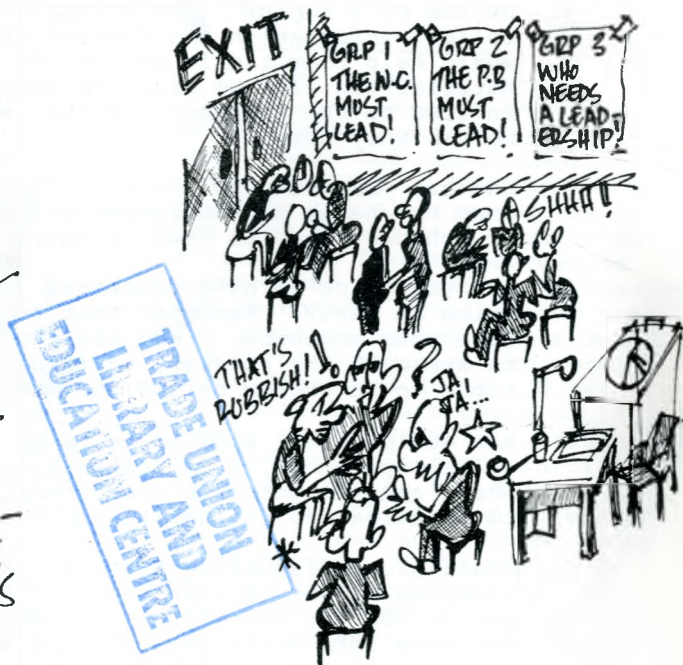 EXIT
GRP 1
THE N.C.
MUST
LEAD!
GRP 2
THE P.B
MUST
LEAD!
GRP 3
WHO
NEEDS
A LEAD-
ERSHIP!
SHHH!
THAT'S
RUBBISH!
!
?
JA
JA...
TRADE UNION
LIBRARY AND
EDUCATION CENTRE
S